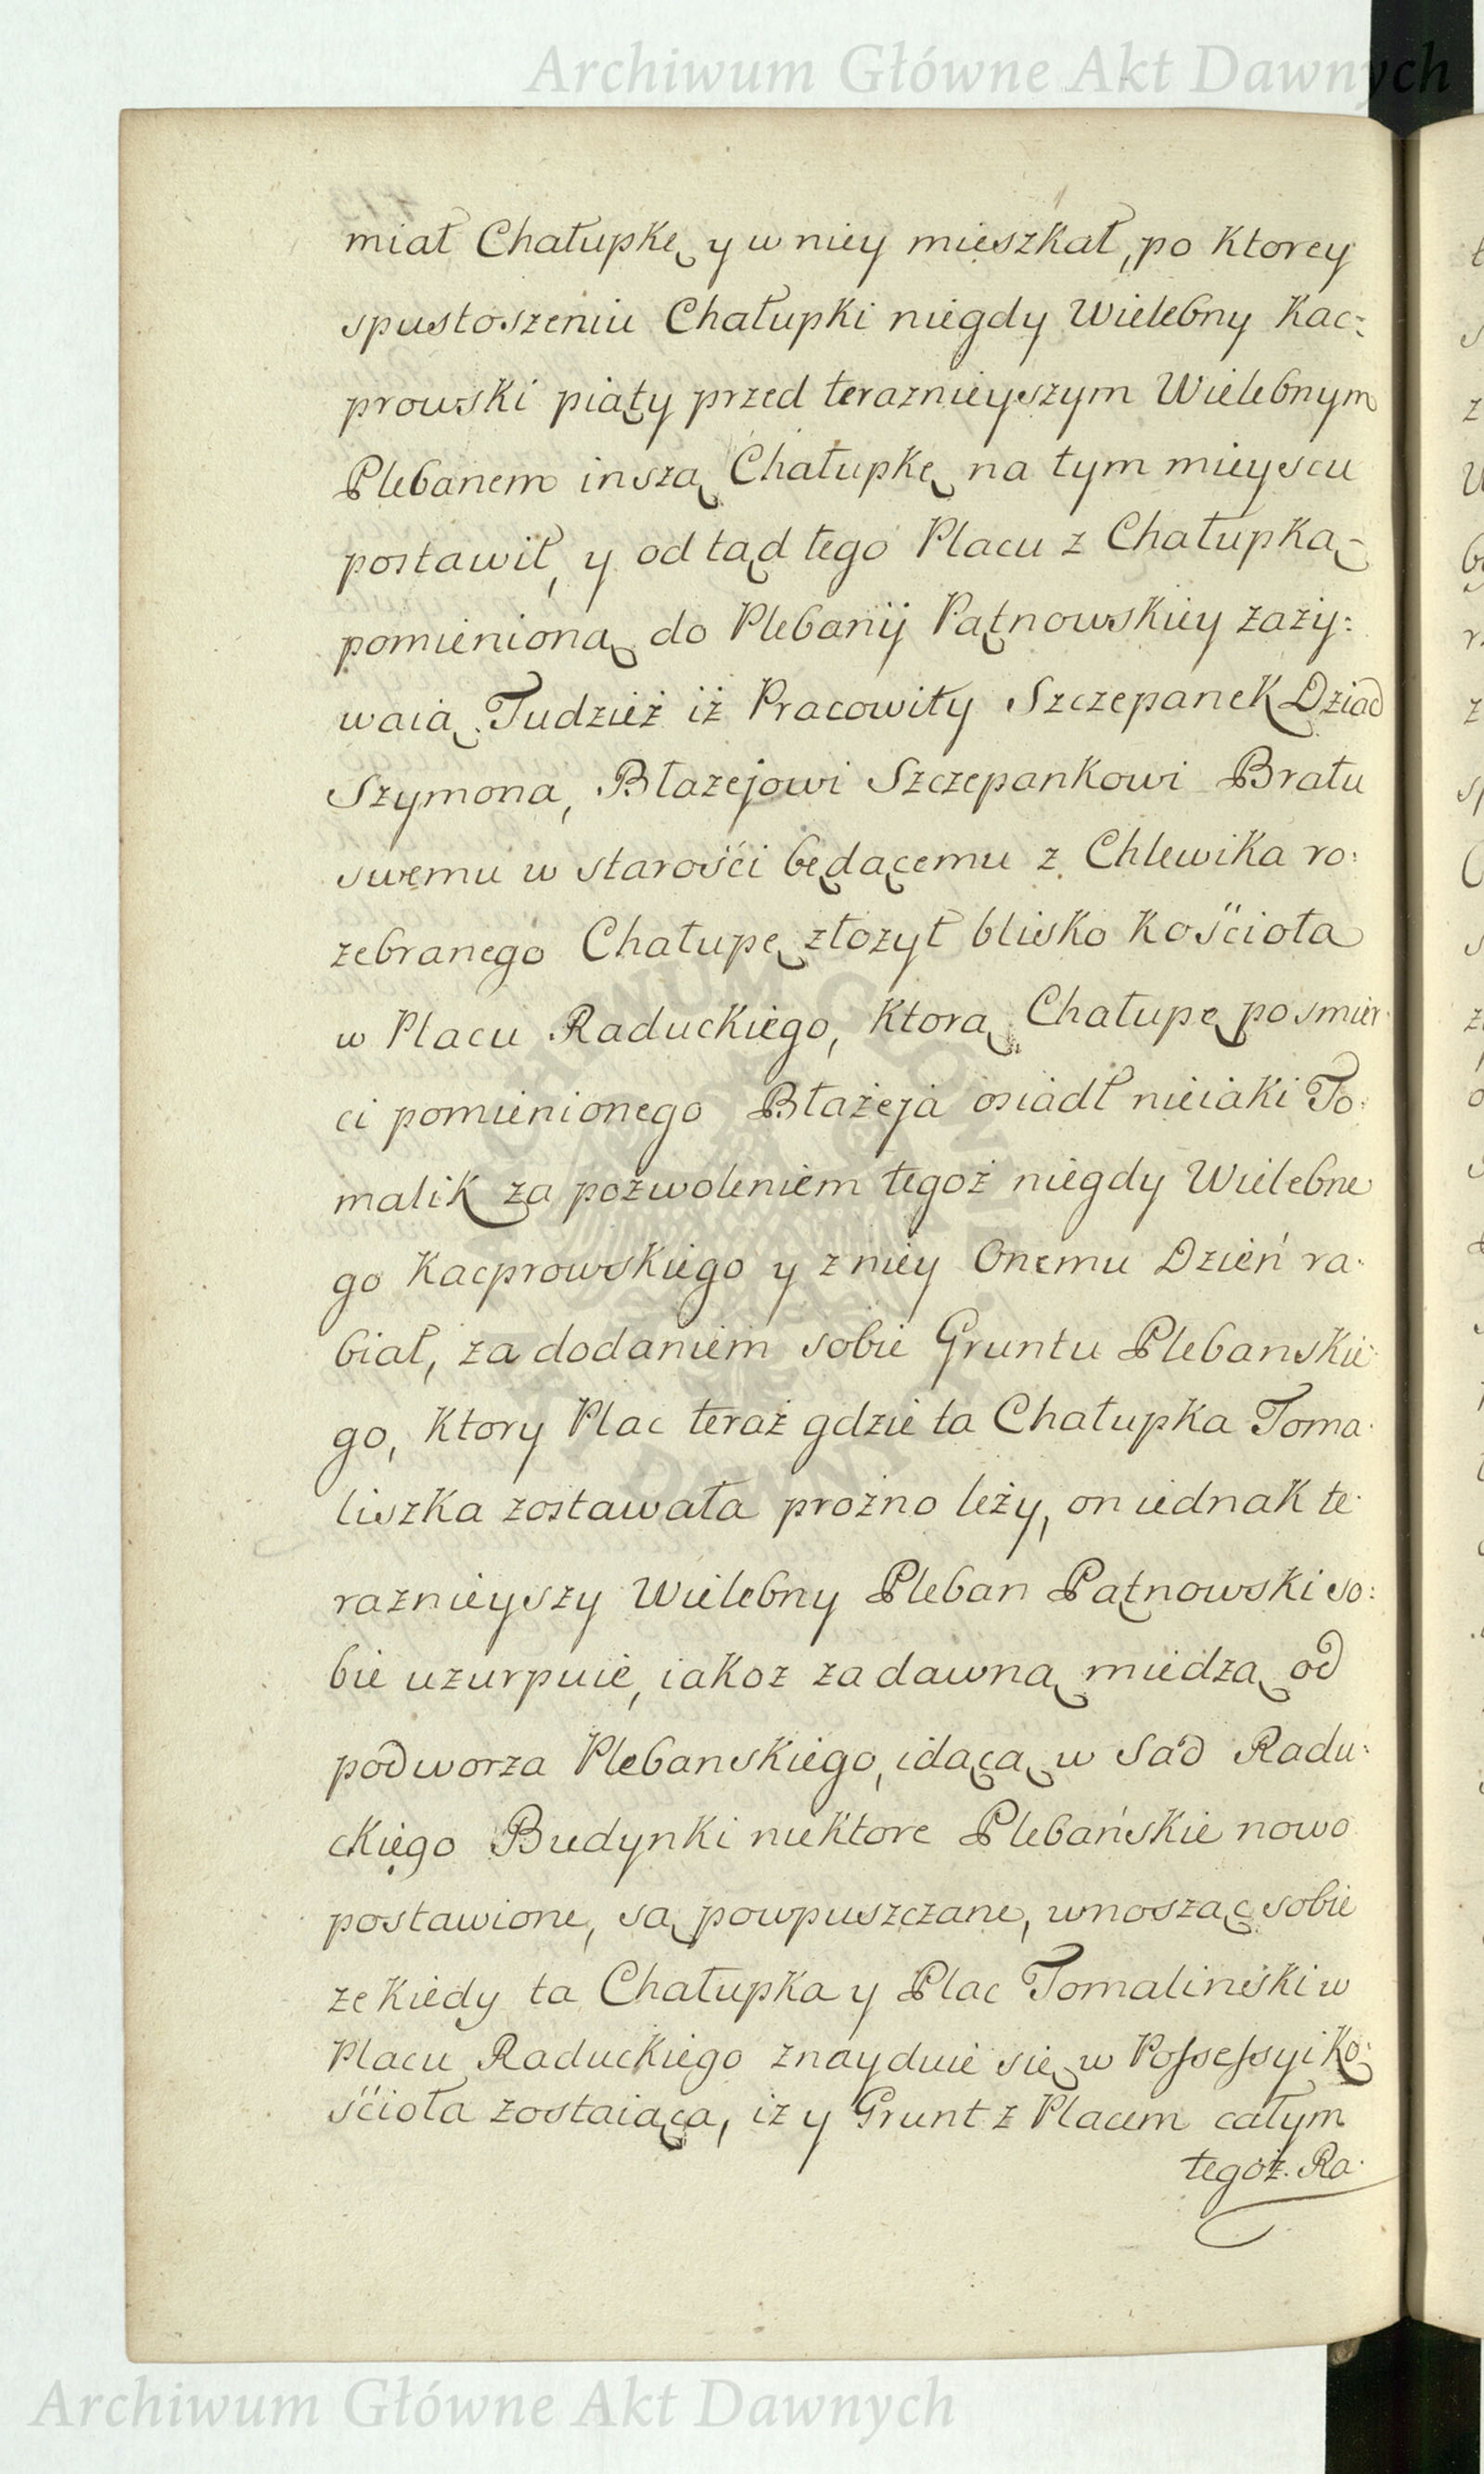 Archiwum Główne Akt Dawnych
miał Chałupkę y w niey mieszkał, po Ktorey
spustoszeniu Chałupki niegdy Wielebny Kac:
prowski piąty przed teraznieyszym Wielebnym
Plebanem inszą Chałupkę na tym mieyscu
postawił, y od tąd tego Placu z Chałupką
pomienioną do Plebanij Pątnowskiey zaży:
waią Tudzież iż Pracowity Szczepanek Dziad
Szymona, Błazejowi Szczepankowi Bratu
swemu w starośći będącemu z Chlewika ro:
zebranego Chałupę złozył blisko Kośćioła
w Placu Raduckiego, Ktorą Chałupę po smier:
ci pomienionego Błażeja osiadł nieiaki To:
malik za pozwoleniem tegoż niegdy Wielebne
go Kacprowskiego y z niey Onemu Dzień ra:
biał, za dodaniem sobie Gruntu Plebanskie:
go, Ktory Plac teraż gdzie ta Chałupka Toma:
liszka zostawała prożno leży, on iednak te:
raznieyszy Wielebny Pleban Pątnowski so:
bie uzurpuie, iakoz za dawną miedzą od
podworza Plebanskiego, idącą w Sad Radu:
ckiego Budynki niektore Plebańskie nowo
postawione, są powpuszczane, wnosząc sobie
ze kiedy ta Chałupka y Plac Tomalinski w
Placu Raduckiego znayduie się w Possessyi Ko:
śćioła zostaiąca, iz y Grunt z Placem całym
tegoż Ra:
ARCHIWUM GŁÓWNE AKT DAWNYCH
Archiwum Główne Akt Dawnych